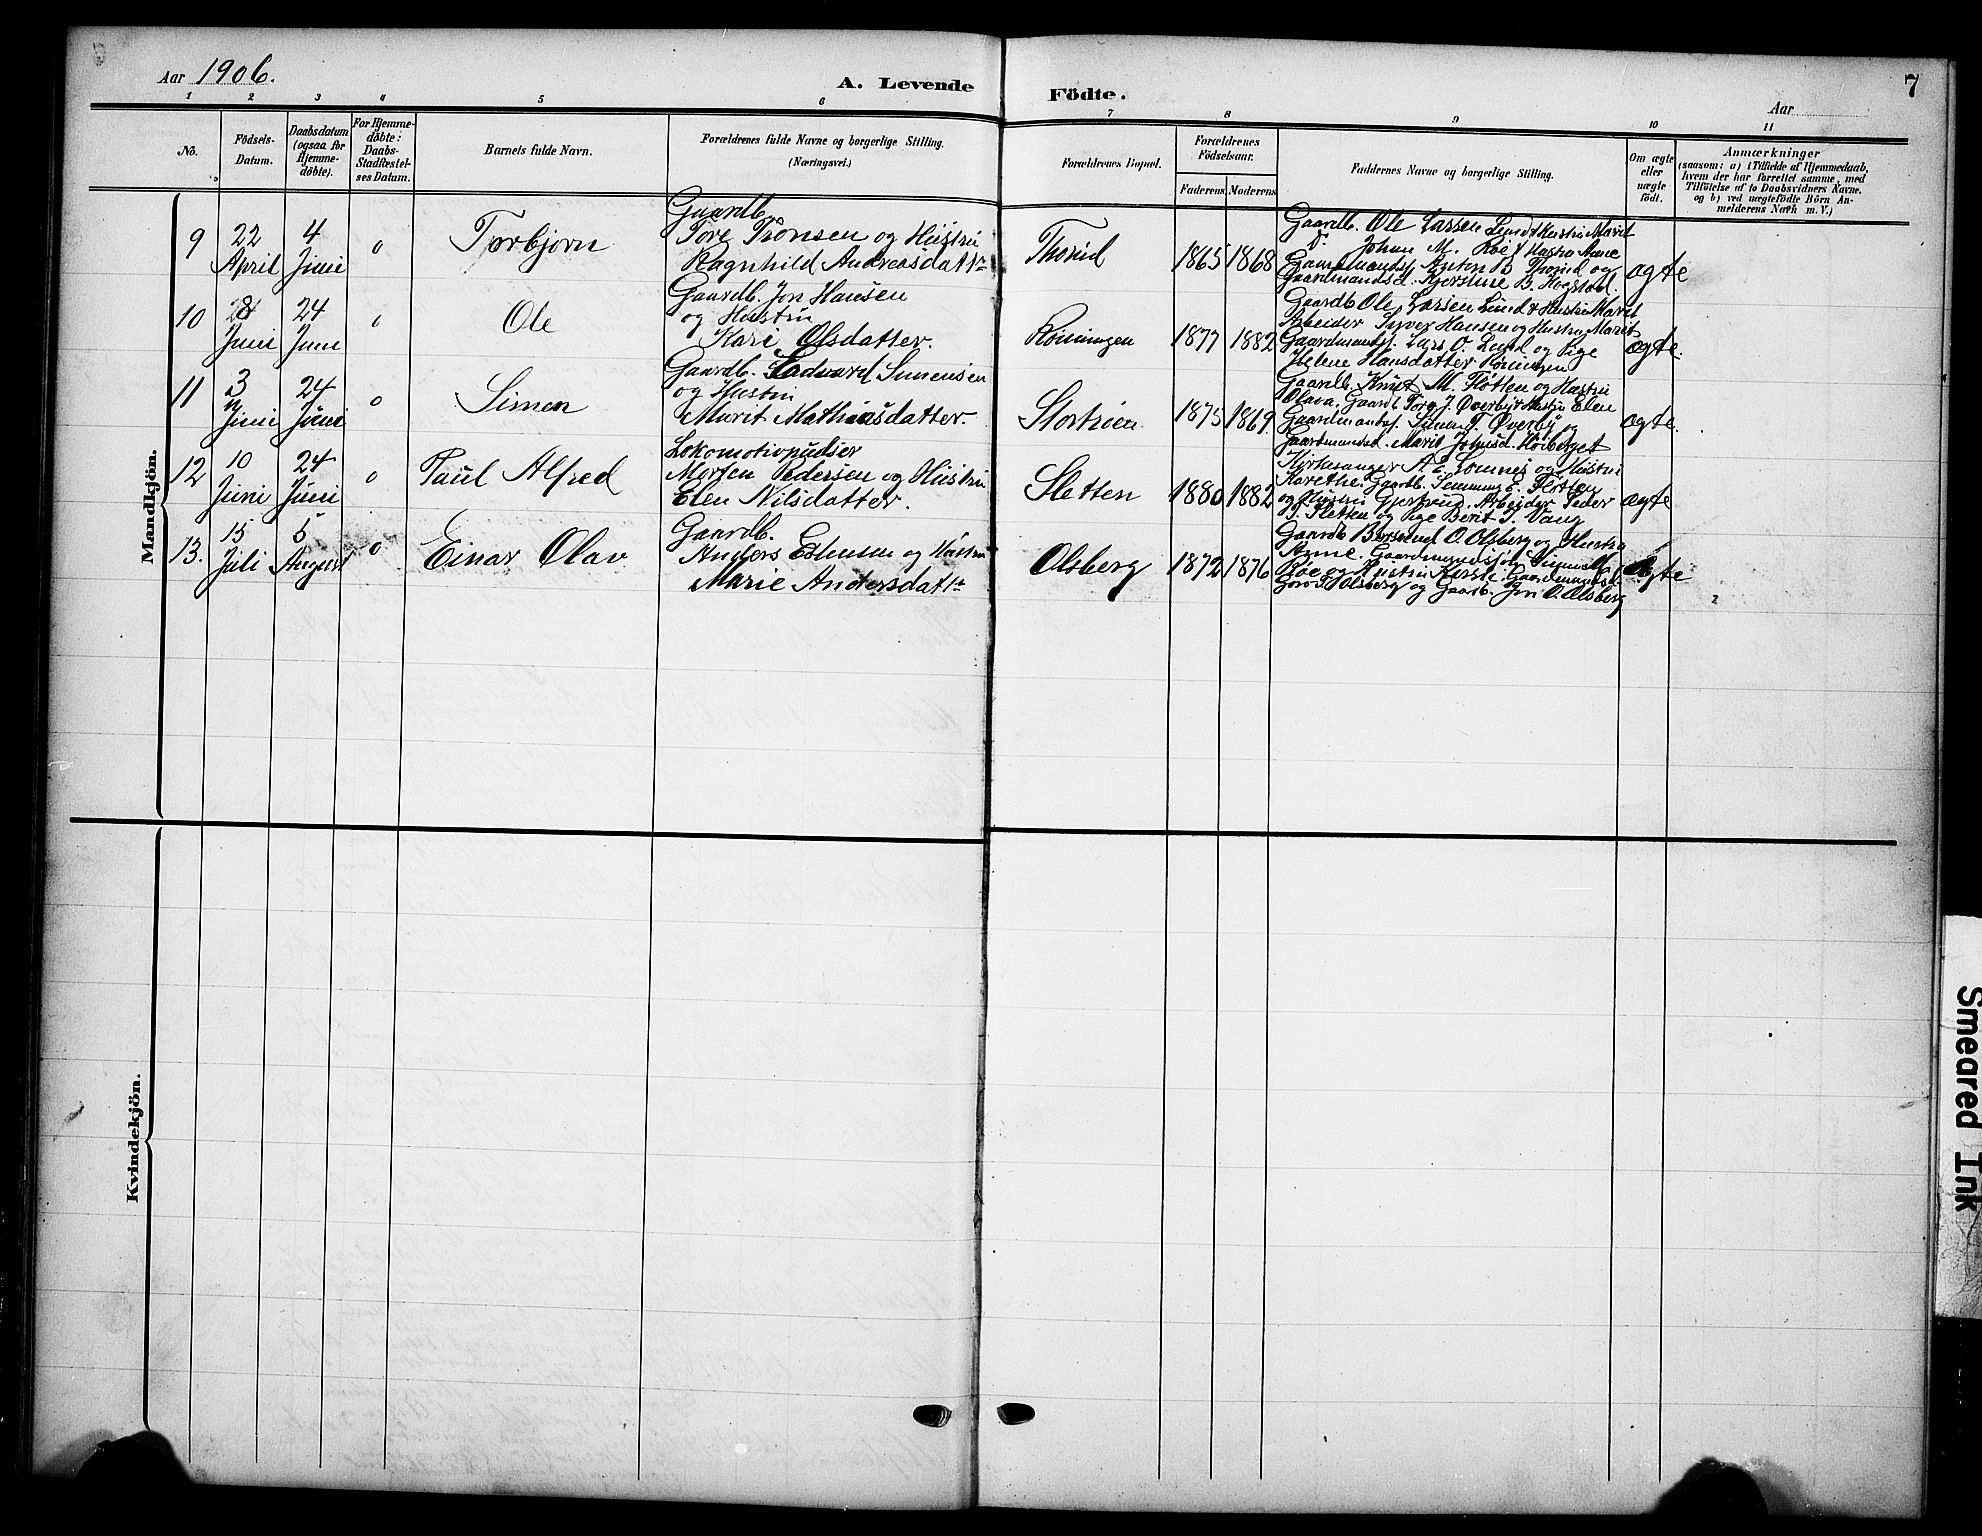 Aar 1906.
A. Levende Födte.
Aar
7
1 2 3 4 5 6 7 8 9 10 11
No.
Födsels-
Datum.
Daabsdatum
(ogsaa for
Hjemme-
döbte).
For Hjemme-
döbte:
Daabs-
Stadfæstel-
ses Datum.
Barnets fulde Navn.
Forældrenes fulde Navne og borgerlige Stilling.
(Næringsvei.)
Forældrenes Bopæl.
Forældrenes
Födselsaar.
Faderens. Moderens.
Faddernes Navne og borgerlige Stilling.
Om ægte
eller
uægte
födt.
Anmærkninger
(saasom: a) i Tilfælde af Hjemmedaab,
hvem der har forrettet samme, med
Tilföielse af to Daabsvidners Navne.
og b) ved uægtefödte Börn An-
melderens Navn m. V.)
Mandkjön.
9
22
April
4
Juni
0
Torbjørn
Gaardb.
Tore Tronsen og Hustru
Ragnhild Andreasdattr
1865 1868
Gaardb. Ole Larsen Lund & Hustru Marit
Johan M. Røe & Hustru Anne
Gaardmands. Anton B. og
Gaardmandsd. Kjerstine B.
ægte
10
Juni
24
Juni
0
Ole
Gaardb. Jon Hansen
og Hustru
Kari Olsdatter.
Rønningen
1877 1882
Gaardb Ole Larsen Lund & Hustru Marit
Arbeider Syver Hansen og Hustru Marit
Gaardmands. Lars O. Lund og Pige
Helene Hansdatter Rønningen
ægte.
11
3
Juni
24
Juni
0
Simen
Gaardb. Simensen
og Hustru
Marit Mathiasdatter.
Storrøen
1875 1869.
Gaardb. Knut M. Fløtten og Hustru
Olava. Gaardb. J. Øverby & Hustru Elen
Gaardmands. T. Øverby og
Gaardmandsd. Marit Johnsd.
ægte.
12
10
Juni
24
Juni
0
Paul Alfred
Lokomotivpudser
Morten Pedersen og Hustru
Elen Nilsdatter.
Sletten
1880 1882
Kirkesanger A. E. og Hustru
Karethe. Gaardb. E. Fløtten
og Hustru Gjertrud. Arbeider Peder
P. Sletten og Pige Berit J. Vang
ægte
13.
15
Juli
5
August
0
Einar Olav
Gaardb.
Anders Estensen og Hustru
Marie Andersdattr
Olsberg
1872 1876
Gaardb O. Olsberg og Hustru
Anne. Gaardmandssøn
Røe og Hustru
Olsberg og Gaardb. Jon O. Olsberg
Ægte
Kvindekjön.
Smeared Ink